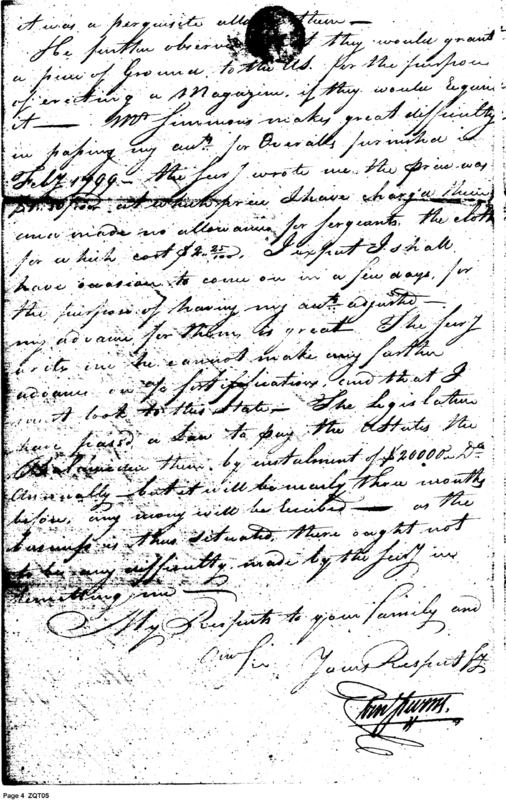 it was a perquisite them —
He further observe they would grant
a piece of Ground, to the US. for the purpose
of erecting a Magazine, if they would Require
it — Mr Simmons makes great difficulty
in paying my for Overalls furnished in
Feby 1799 — the Secy wrote me the price was
at which price I have charged them
and made no allowance for Sergeants, the cloth
for which cost $2 25/100. I expect I shall
have occasion to come on in a few days, for
the purpose of having my adjusted —
my advance for them is great — The Secy
me he cannot make any further
advance on fortifications, and that I
must look to this State — The Legislature
have passed a Law to pay the States the
them, by instalment of $20000
Annually — but it will be nearly three months
before, any money will be Received — as the
business is thus situated, there ought not
to be any difficulty made by the Secy in
me —
My Respects to your family and
Sir Yours Respectfy

Page 4 ZQT05